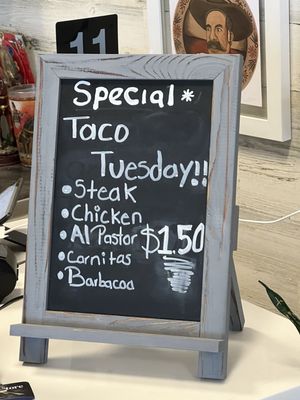 11
Special *
Taco
Tuesday!!
• Steak
• Chicken
• Al Pastor
$1.50
• Carnitas
• Barbacoa